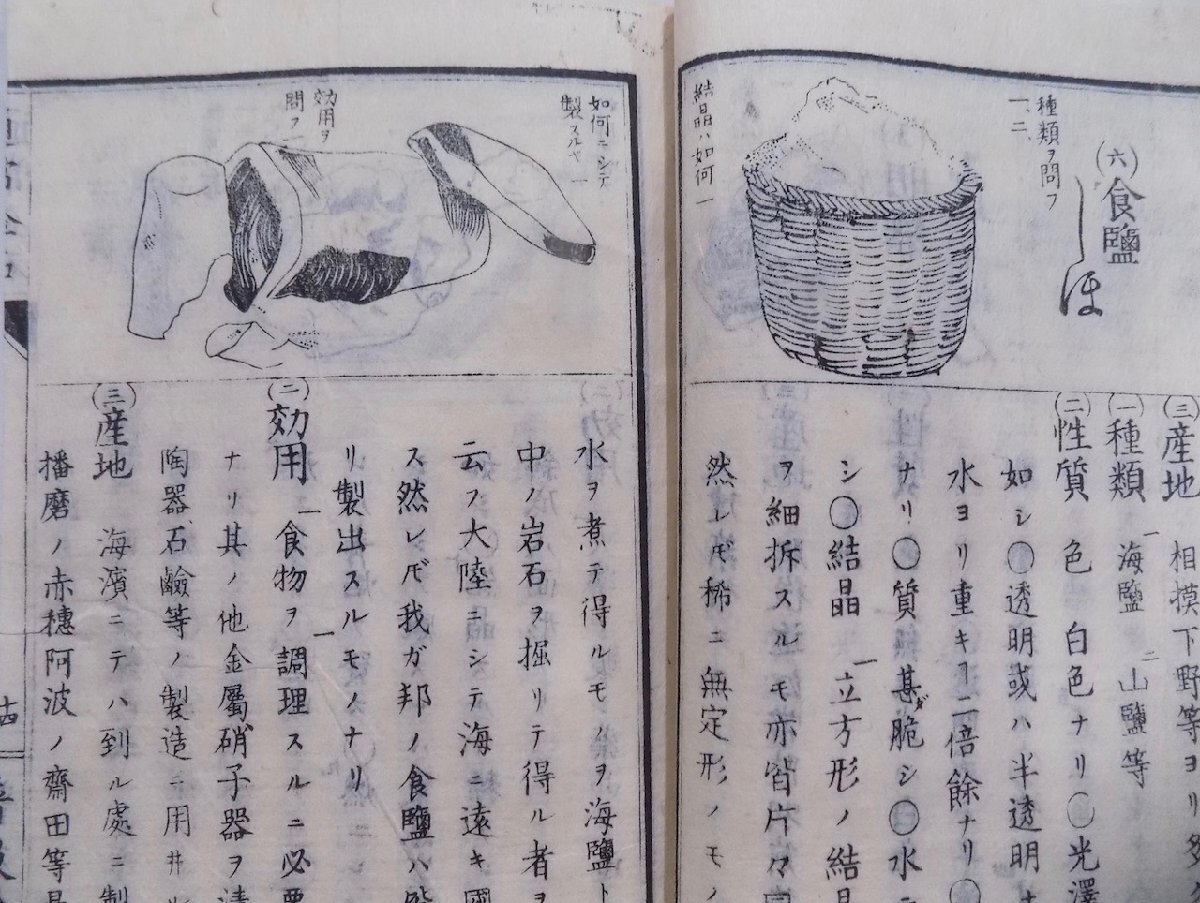 (六)食鹽
しほ
種類ヲ問フ
一、二、
結晶ハ如何 一
(三)産地 相摸下野等ヨリ多
(一)種類 一海鹽 二山鹽等
(二)性質 色 白色ナリ〇光澤
如シ〇透明或ハ半透明
水ヨリ重キヿ二倍餘ナリ〇
ナリ〇質甚ダ脆シ〇水ニ
シ〇結晶 一立方形ノ結晶
ヲ細拆スルモ亦皆片々同
然レ𪜈稀ニ無定形ノモノ
如何ニシテ
製スルヤ 一
効用ヲ
問フ 一
水ヲ煮テ得ルモノヲ海鹽ト
中ノ岩石ヲ掘リテ得ル者ヲ
云フ大陸ニシテ海ニ遠キ國
ス然レ𪜈我ガ邦ノ食鹽ハ皆
リ製出スルモノナリ
(二)効用 一食物ヲ調理スルニ一必要
ナリ其ノ他金屬硝子器ヲ
陶器石鹼等ノ製造ニ用井
(三)産地 海濱ニテハ到ル處ニ製
播磨ノ赤穗阿波ノ齋田等
十四